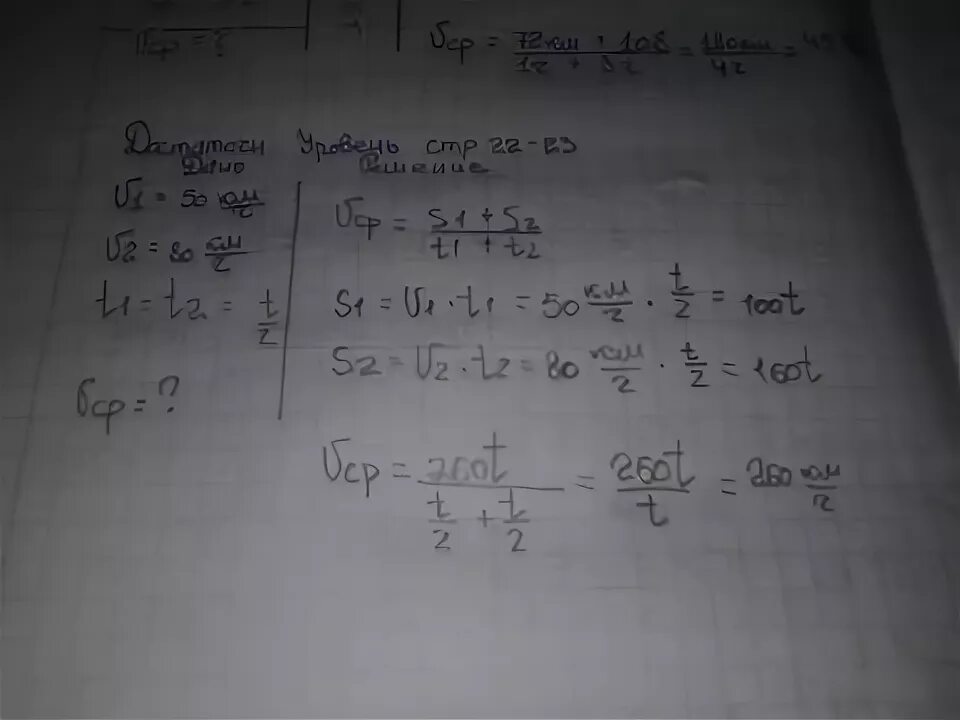 Vср = ?
Vср = 72км + 108 / 1г + 3г = 180км / 4г = 45
Достаточн Уровень стр 22-23
Дано Решение
V1 = 50 км/г
V2 = 80 км/г
t1 = t2 = t/2
Vср = ?
Vср = S1 + S2 / t1 + t2
S1 = V1 · t1 = 50 км/г · t/2 = 100t
S2 = V2 · t2 = 80 км/г · t/2 = 160t
Vср = 260t / t/2 + t/2 = 260t / t = 260 км/г